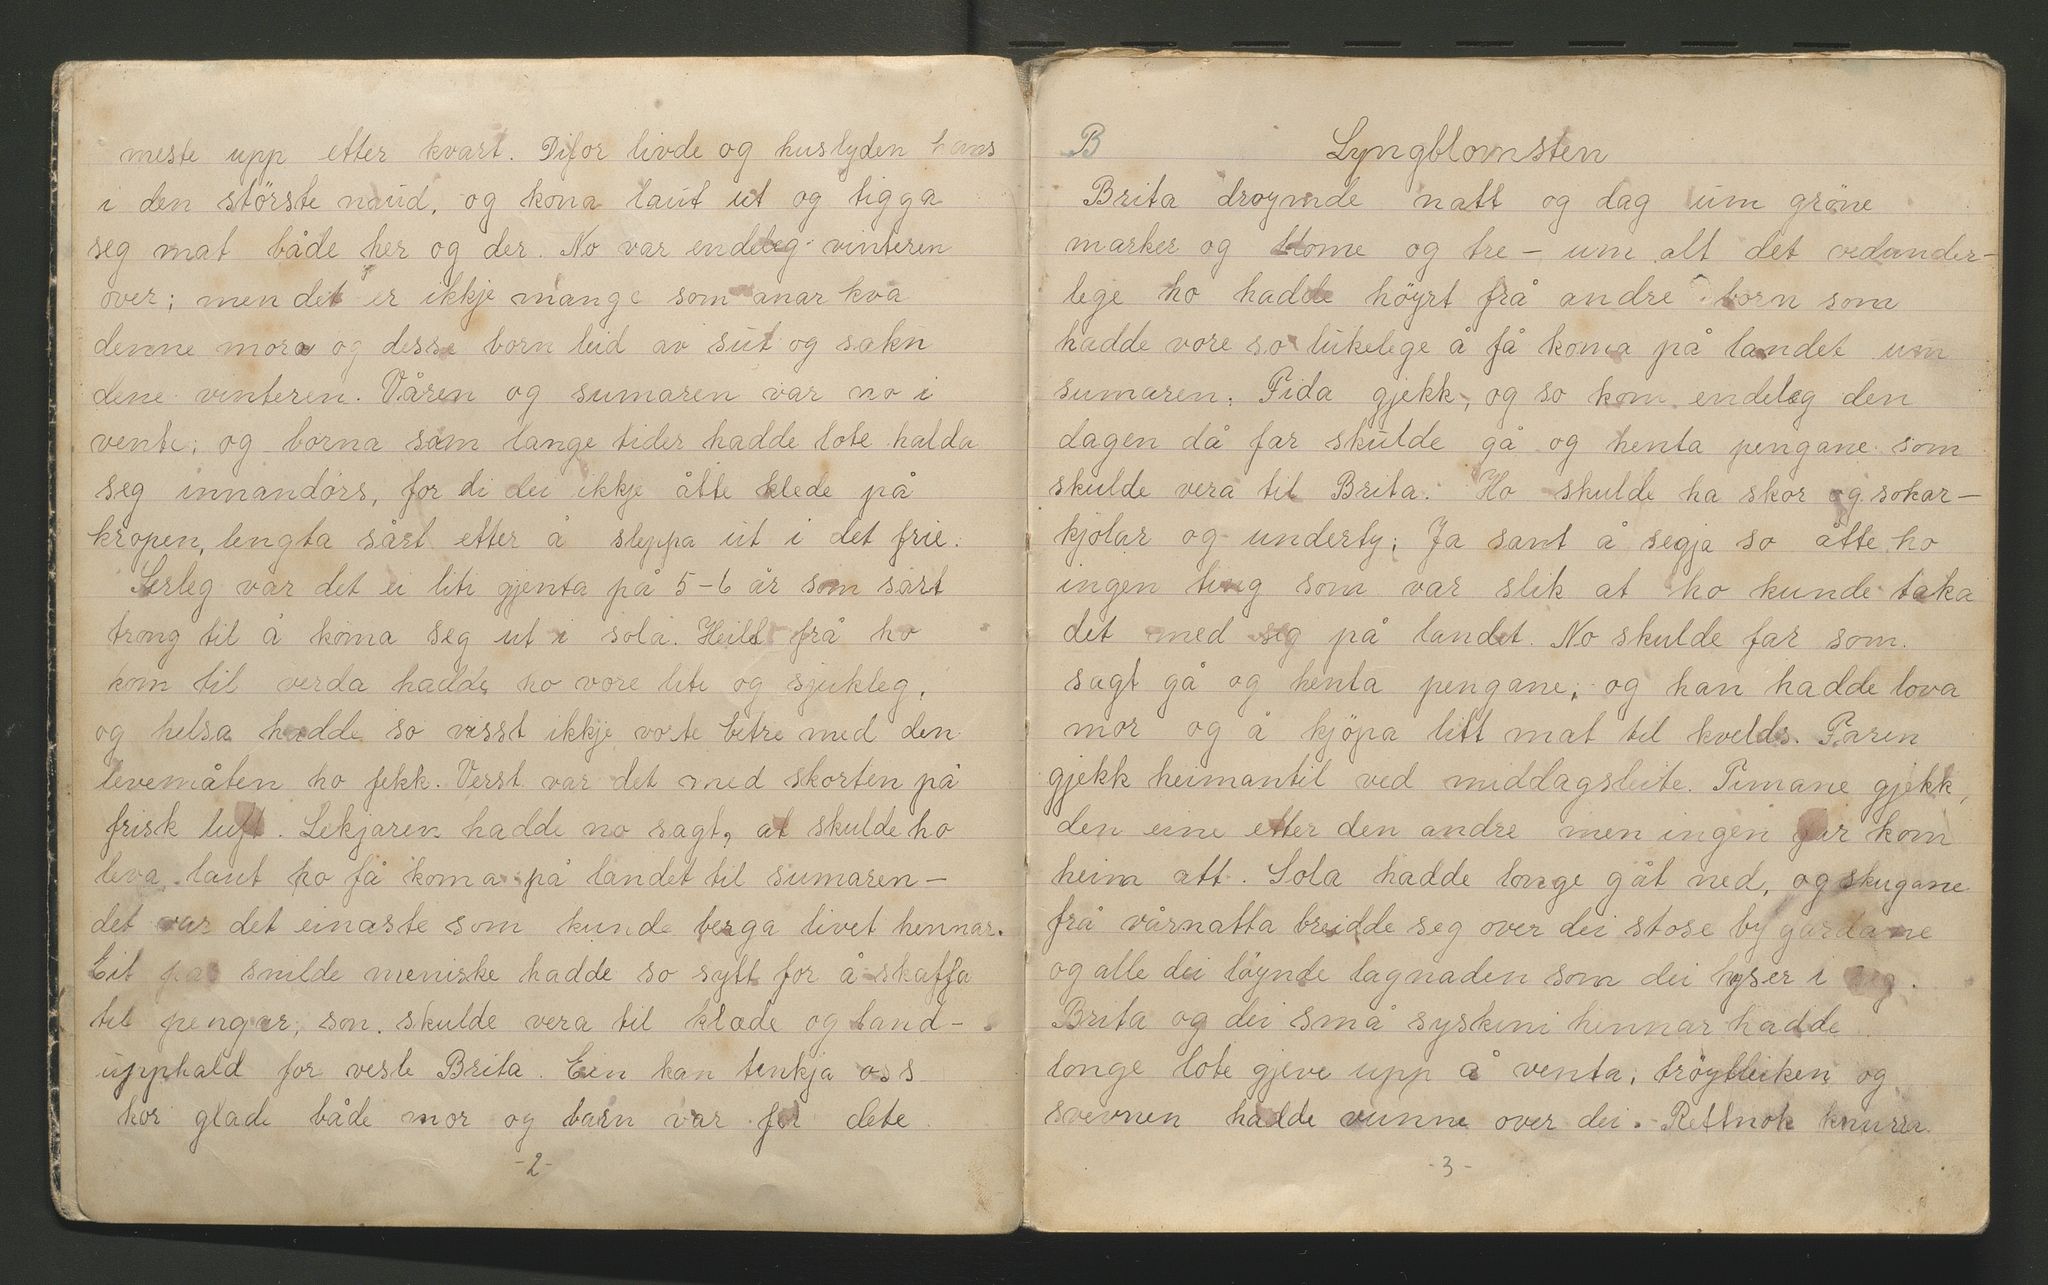 meste upp etter kvart. Difor livde og huslyden hans
i den største naud, og kona laut ut og tigga
seg mat både her og der. No var endeleg vinteren
over; men det er ikkje mange som anar kva
denne mora og desse born leid av sut og sakn
dene vinteren. Våren og sumaren var no i
vente; og borna som lange tider hadde lote halda
seg innandörs, for di dei ikkje åtte klede på
kropen, lengta sårt etter å sleppa ut i det frie.
Serleg var det ei liti gjenta på 5-6 år som sårt
trong til å koma seg ut i sola. Heilt frå ho
kom til verda hadde ho vore liti og sjukleg,
og helsa hadde so visst ikkje vorte betre med den
levemåten ho fekk. Verst var det med skorten på
frisk luft. Lekjaren hadde no sagt, at skulde ho
leva, laut ho få koma på landet til sumaren -
det var det einaste som kunde berga livet hennar.
Eit par snilde meniske hadde so sytt for å skaffa
til pengar, som skulde vera til klæde og land-
upphald for vesle Brita. Ein kan tenkja oss
kor glade både mor og barn var for dete.
-2-
B
Lyngblomsten
Brita droymde natt og dag um gröne
marker og blome og tre - um alt det vedunder-
lege ho hadde höyrt frå andre born som
hadde vore so lukelege å få koma på landet um
sumaren. Tida gjekk, og so kom endeleg den
dagen då far skulde gå og henta pengane som
skulde vera til Brita. Ho skulde ha skor og sokar-
kjolar og underty; Ja sant å segja so åtte ho
ingen ting som var slik at ho kunde taka
det med seg på landet. No skulde far som
sagt gå og henta pengane, og han hadde lova
mor og å kjöpa litt mat til kvelds. Faren
gjekk heimantil ved middagsleite. Timane gjekk,
den eine etter den andre men ingen far kom
heim att. Sola hadde longe gåt ned, og skugane
frå vårnatta breidde seg over dei stose bygardane
og alle dei löynde lagnaden som dei hyser i seg.
Brita og dei små syskeni hennar hadde
longe lote gjeve upp å venta, tröytleiken og
svevnen hadde vunne over dei. Rettnok knurra
-3-